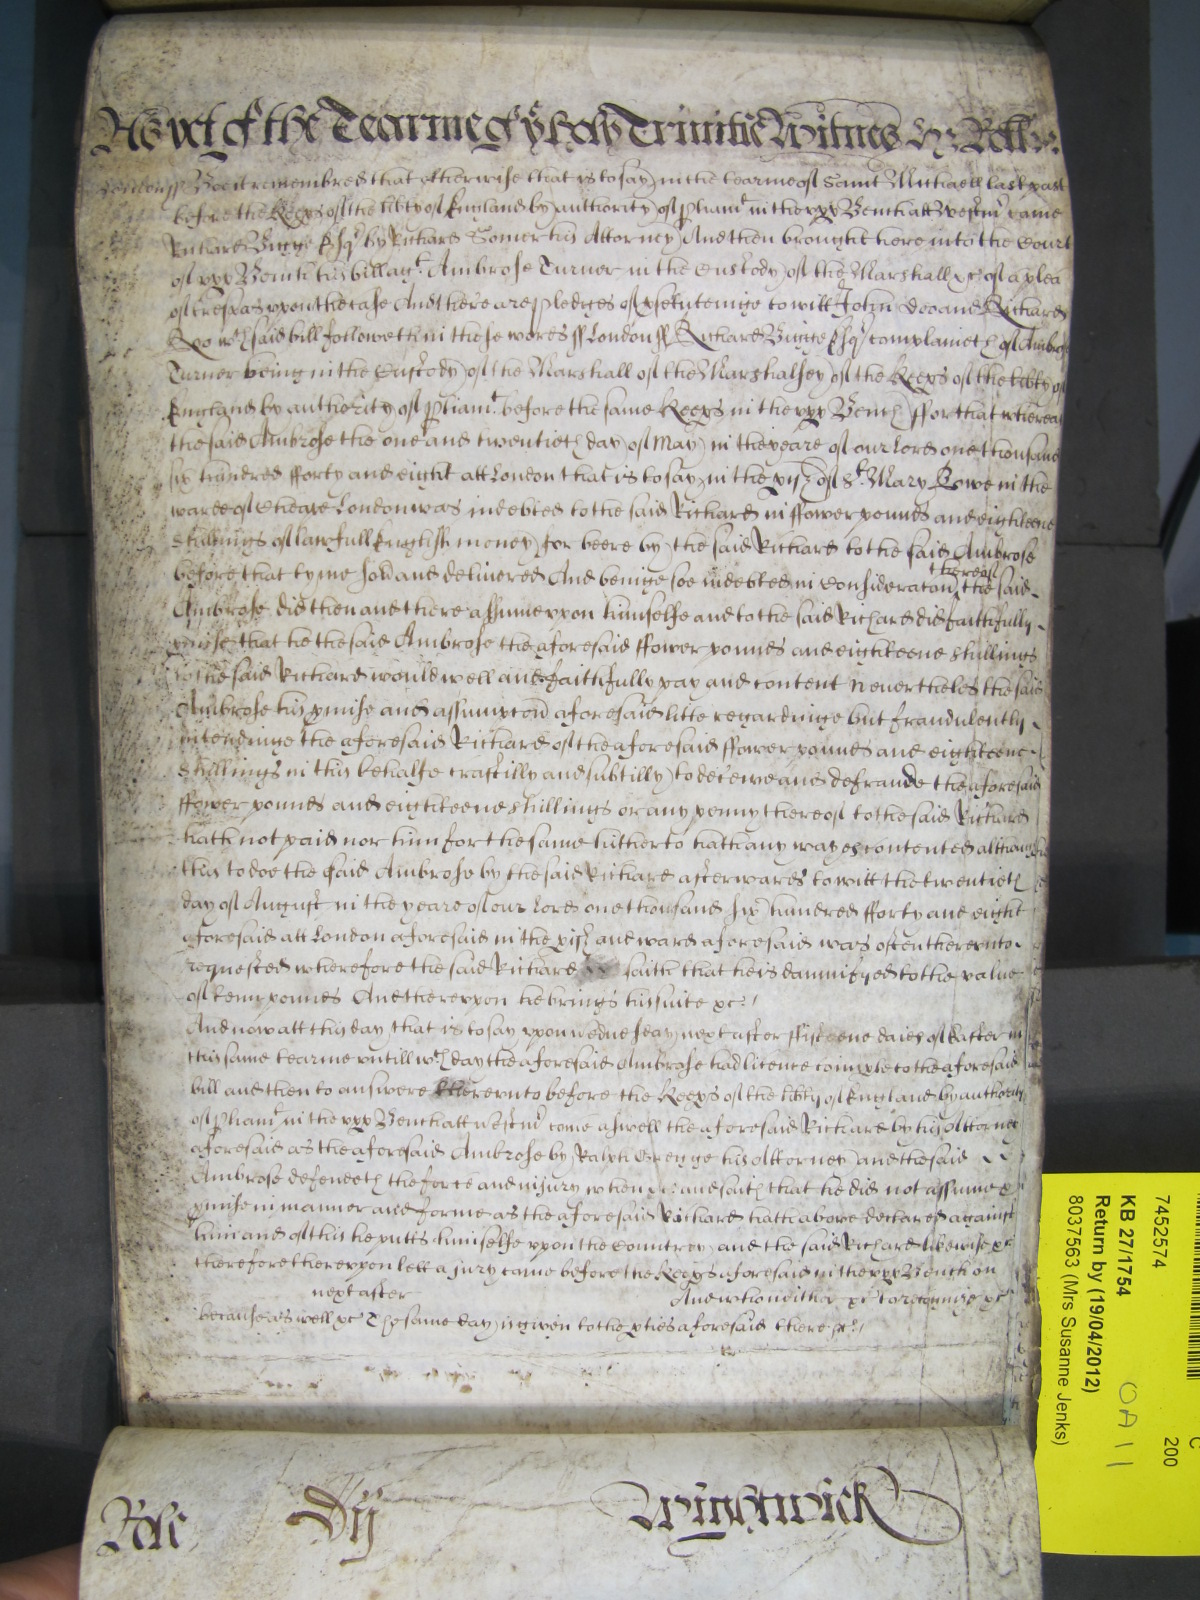 As yet of the Tearme of ye holy Trinitie Witnes H: Roll
London ss Bee it remembred that otherwise that is to say in the tearme of Saint Michaell last past
before the Keeps of the libty of England by authority of Pliamt in the vpp Bench att Westmr came
Richard Bigge Esqr by Richard Somer his Attorney And then brought here into the Court
of vpp Bench his bill agt Ambrose Turner in the Custody of the Marshall &c of a plea
of trespas vpon the case And there are pledges of psecuteinge to witt John Doo and Richard
Roo wch said bill followeth in these words ss London ss Richard Bigge Esqr complaineth of Ambrose
Turner being in the Custody of the Marshall of the Marshalsey of the Keeps of the libty of
England by authority of Pliamt before the same Keeps in the vpp Bench ffor that whereas
the said Ambrose the one and twentieth day of May in the yeare of our Lord one thousand
six hundred fforty and eight att London that is to say in the pish of St Mary Bowe in the
warde of Cheape London was indebted to the said Richard in ffower pounds and eighteene
shillings of lawfull English money for beere by the said Richard to the said Ambrose
before that tyme sold and delivered And beinge soe indebted in consideracon thereof the said
Ambrose did then and there assume vpon himselfe and to the said Richard did faithfully
pmise that he the said Ambrose the aforesaid ffower pounds and eighteene shillings
to the said Richard would well and faithfully pay and content Neverthelès the said
Ambrose his pmise and assumpcon aforesaid litle regardinge but fraudulently
intendinge the aforesaid Richard of the aforesaid ffower pounds and eighteene
shillings in this behalfe craftilly and subtilly to deceive and defraude the aforesaid
ffower pounds and eighteene shillings or any penny thereof to the said Richard
hath not paid nor him for the same hitherto hath any wayes contented although
this to doe the said Ambrose by the said Richard afterwards to witt the twentieth
day of August in the yeare of our Lord one thousand six hundred fforty and eight
aforesaid att London aforesaid in the pish and ward aforesaid was often therevnto
requested wherefore the said Richard saith that he is damnifyed to the value
of tenn pounds And therevpon he brings his suite &c
And now att this day that is to say vpon wednesday next after ffifteene daies of Easter in
this same tearme vntill wch day the aforesaid Ambrose had licence to imple to the aforesaid
bill and then to answere therevnto before the Keeps of the libty of England by authority
of Pliamt in the vpp Bench att Westmr come aswell the aforesaid Richard by his Attorney
aforesaid as the aforesaid Ambrose by Ralph Gregge his Attorney and the said
Ambrose defendeth the force and injury when &c and saith that he did not assume &
pmise in manner and forme as the aforesaid Richard hath above declared against
him and of this he putts himselfe vpon the Countrey and the said Richard likewise &c
therefore therevpon lett a jury come before the Keeps aforesaid in the vpp Bench on
next after And who neither &c to recognize &c
because as well &c The same day is given to the pties aforesaid there &c
Rolle Dij Wightwick
7452574
KB 27/1754
Return by (19/04/2012)
8037563 (Mrs Susanne Jenks)
C
200
OA 11